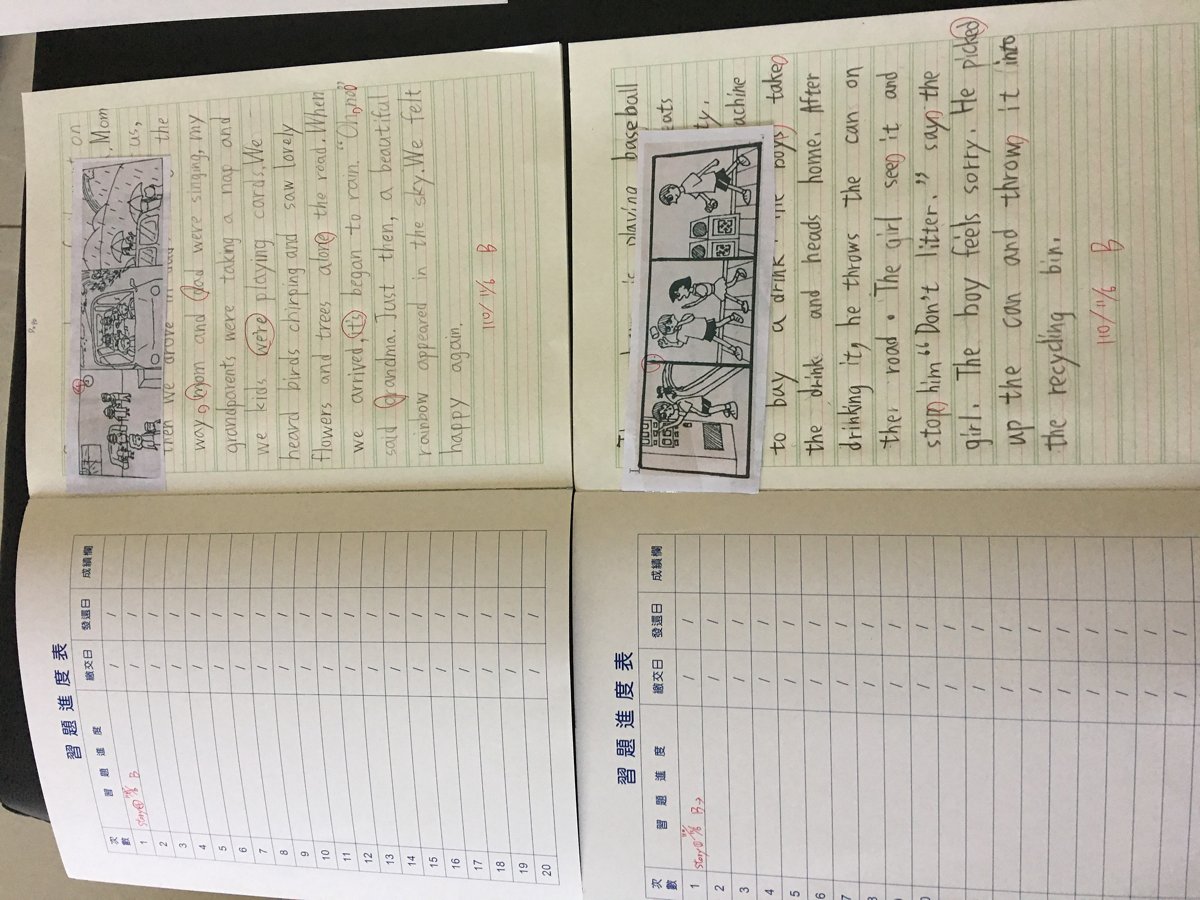 on
. Mom
us,
the
then we drove in
way, mom and dad were singing, my
grandparents were taking a nap and
we kids were playing cards. We
heard birds chirping and saw lovely
flowers and trees along the road. When
we arrived, its began to rain. "Oh, no"
said grandma. Just then, a beautiful
rainbow appeared in the sky. We felt
happy again.
110/11/6 B
playing baseball
eats
ty.
achine
to buy a drink. The boys take
the drink and heads home. After
drinking it, he throws the can on
ther road. The girl see it and
stop him "Don't litter." say the
girl. The boy feels sorry. He picked
up the can and thrown it into
the recycling bin.
110/11/6 B
習題進度表
次數 習題進度 繳交日 發還日 成績欄
1 story① 11/6 B / /
2 / /
3 / /
4 / /
5 / /
6 / /
7 / /
8 / /
9 / /
10 / /
11 / /
12 / /
13 / /
14 / /
15 / /
16 / /
17 / /
18 / /
19 / /
20 / /
習題進度表
次數 習題進度 繳交日 發還日 成績欄
1 story① 11/6 B→ / /
2 / /
3 / /
4 / /
5 / /
6 / /
7 / /
8 / /
9 / /